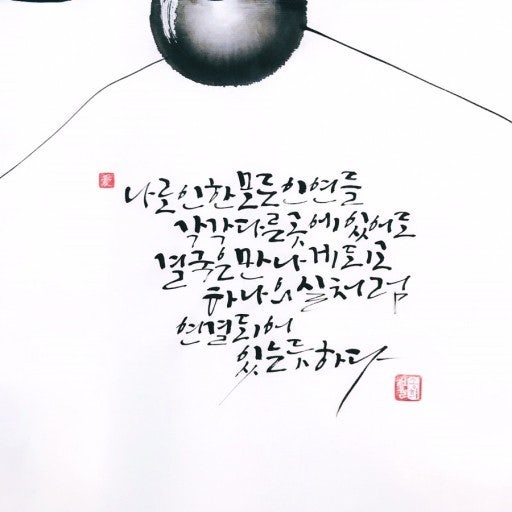 나로 인한 모든 인연들
각각 다른 곳에 있어도
결국은 만나게 되고
하나의 실처럼
연결되어
있는 듯 하다